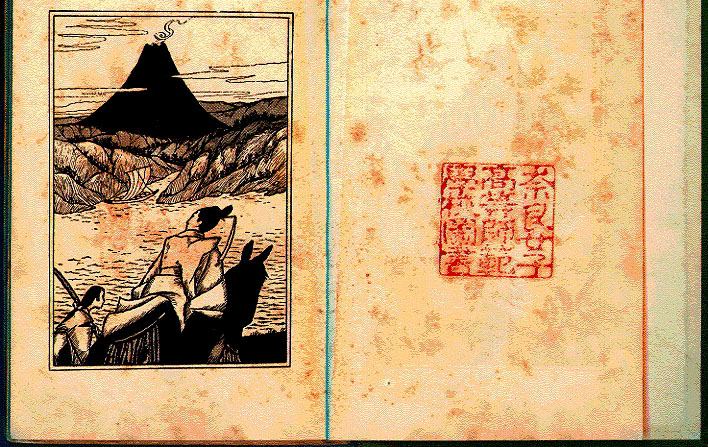 奈良女子
高等師範
學校圖書